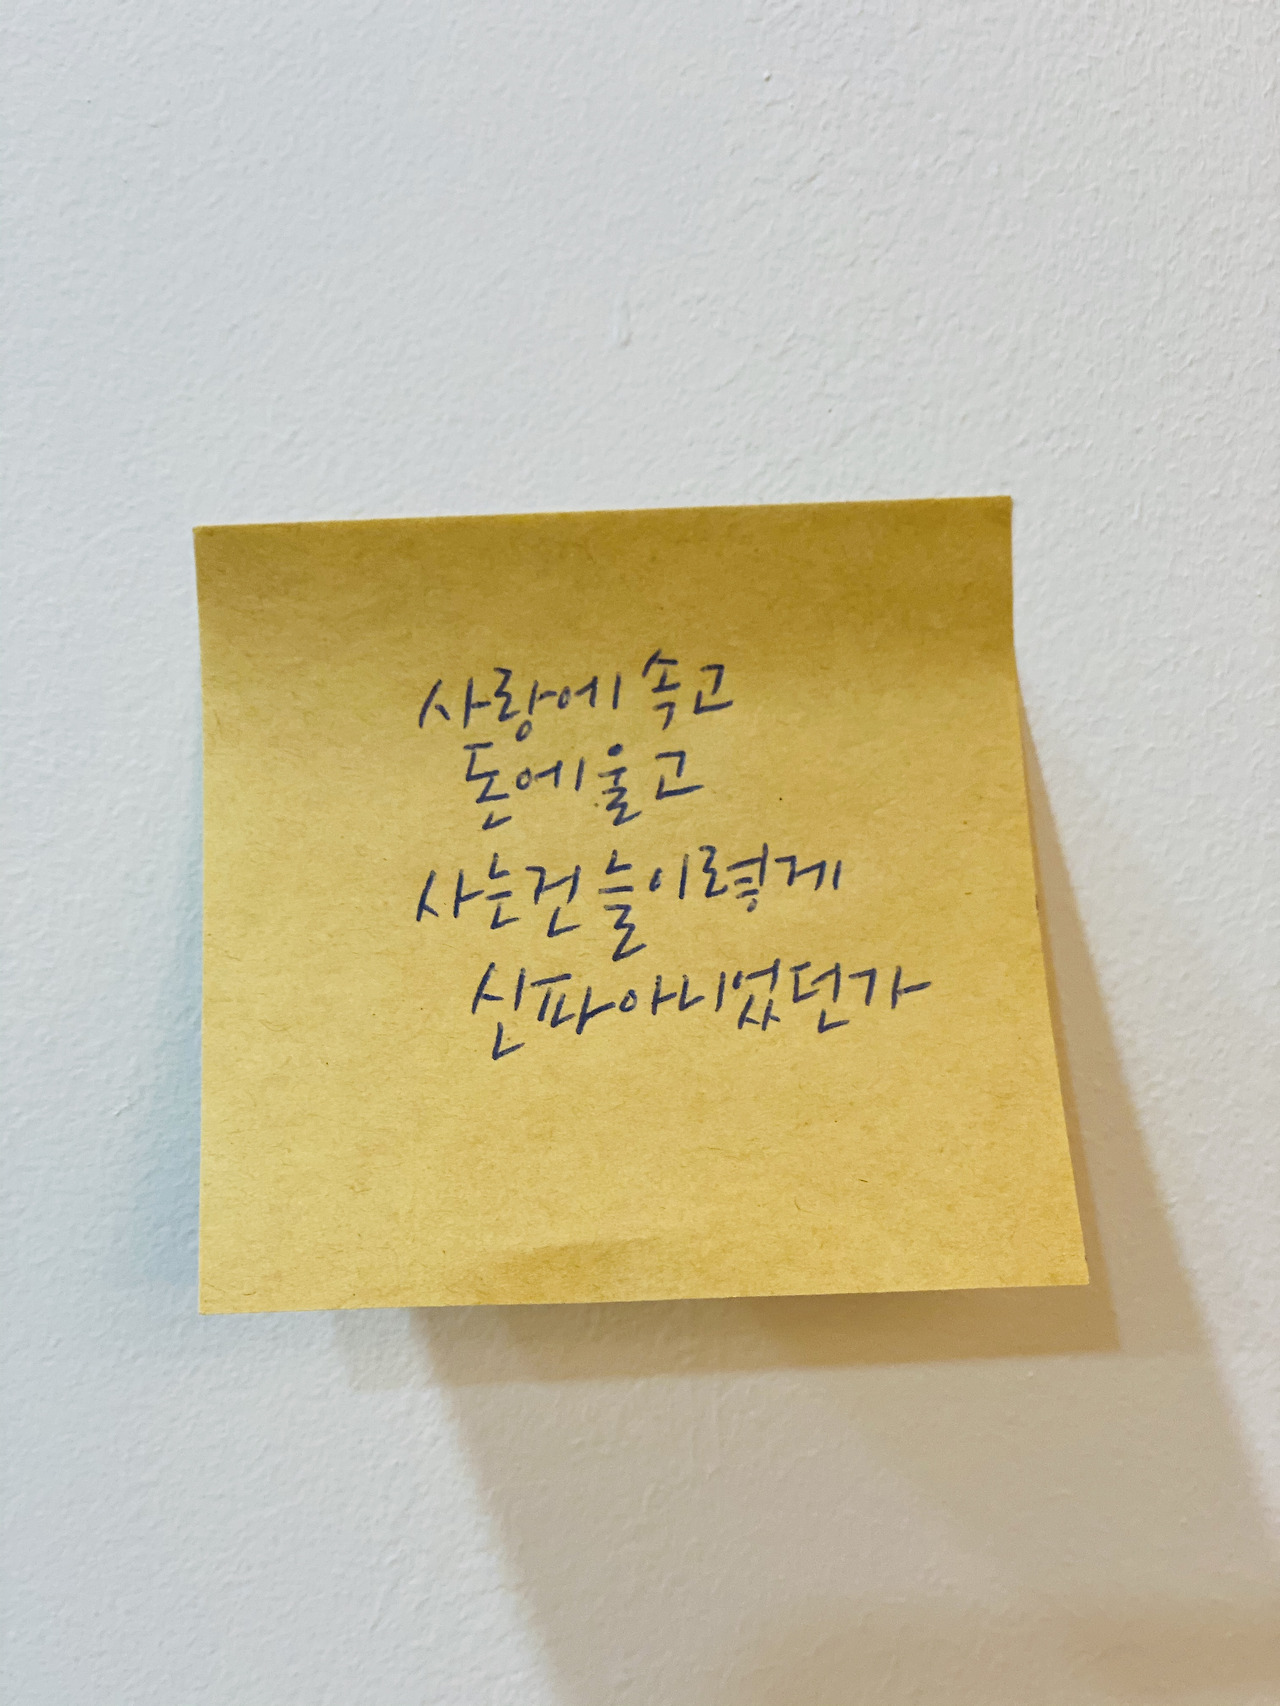 사랑에 속고
돈에 울고
사는건 늘 이렇게
신파 아니었던가